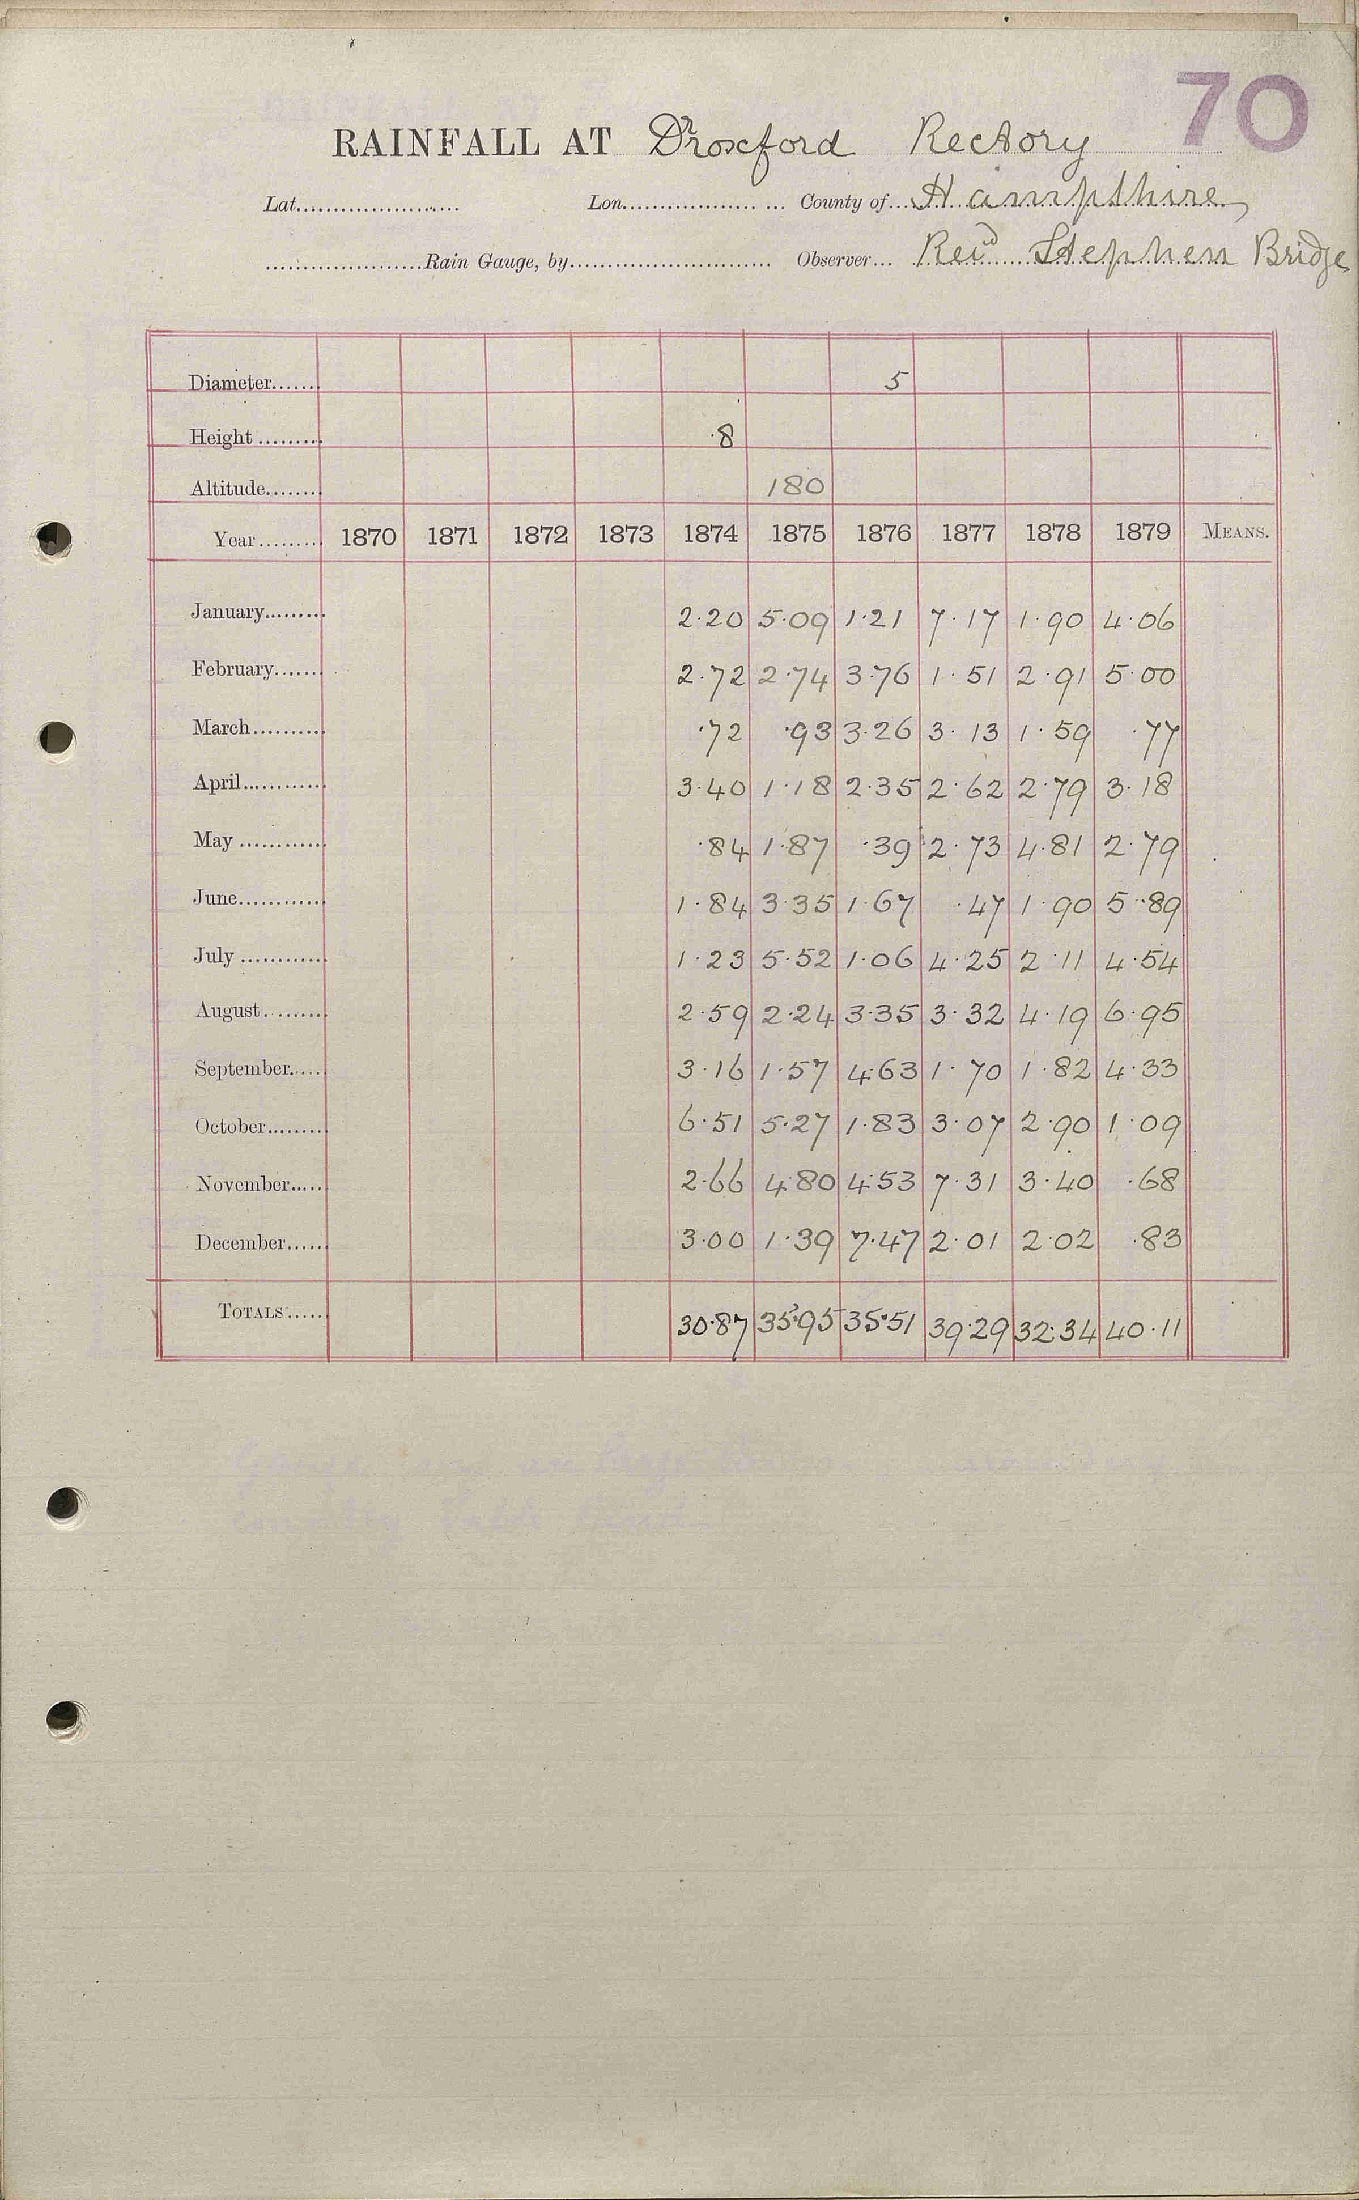 70
RAINFALL AT Droxford Rectory
Lat..................... Lon..................... County of... Hampshire
.....................Rain Gauge, by........................... Observer... Revd Stephen Bridge
Diameter....... 5
Height ......... ·8
Altitude........ 180
Year......... 1870 1871 1872 1873 1874 1875 1876 1877 1878 1879 MEANS.
January......... 2·20 5·09 1·21 7·17 1·90 4·06
February....... 2·72 2·74 3·76 1·51 2·91 5·00
March.......... ·72 ·93 3·26 3·13 1·59 ·77
April............ 3·40 1·18 2·35 2·62 2·79 3·18
May ............ ·84 1·87 ·39 2·73 4·81 2·79
June............ 1·84 3·35 1·67 ·47 1·90 5·89
July ............ 1·23 5·52 1·06 4·25 2·11 4·54
August......... 2·59 2·24 3·35 3·32 4·19 6·95
September..... 3·16 1·57 4·63 1·70 1·82 4·33
October........ 6·51 5·27 1·83 3·07 2·90 1·09
November..... 2·66 4·80 4·53 7·31 3·40 ·68
December...... 3·00 1·39 7·47 2·01 2·02 ·83
TOTALS...... 30·87 35·95 35·51 39·29 32·34 40·11